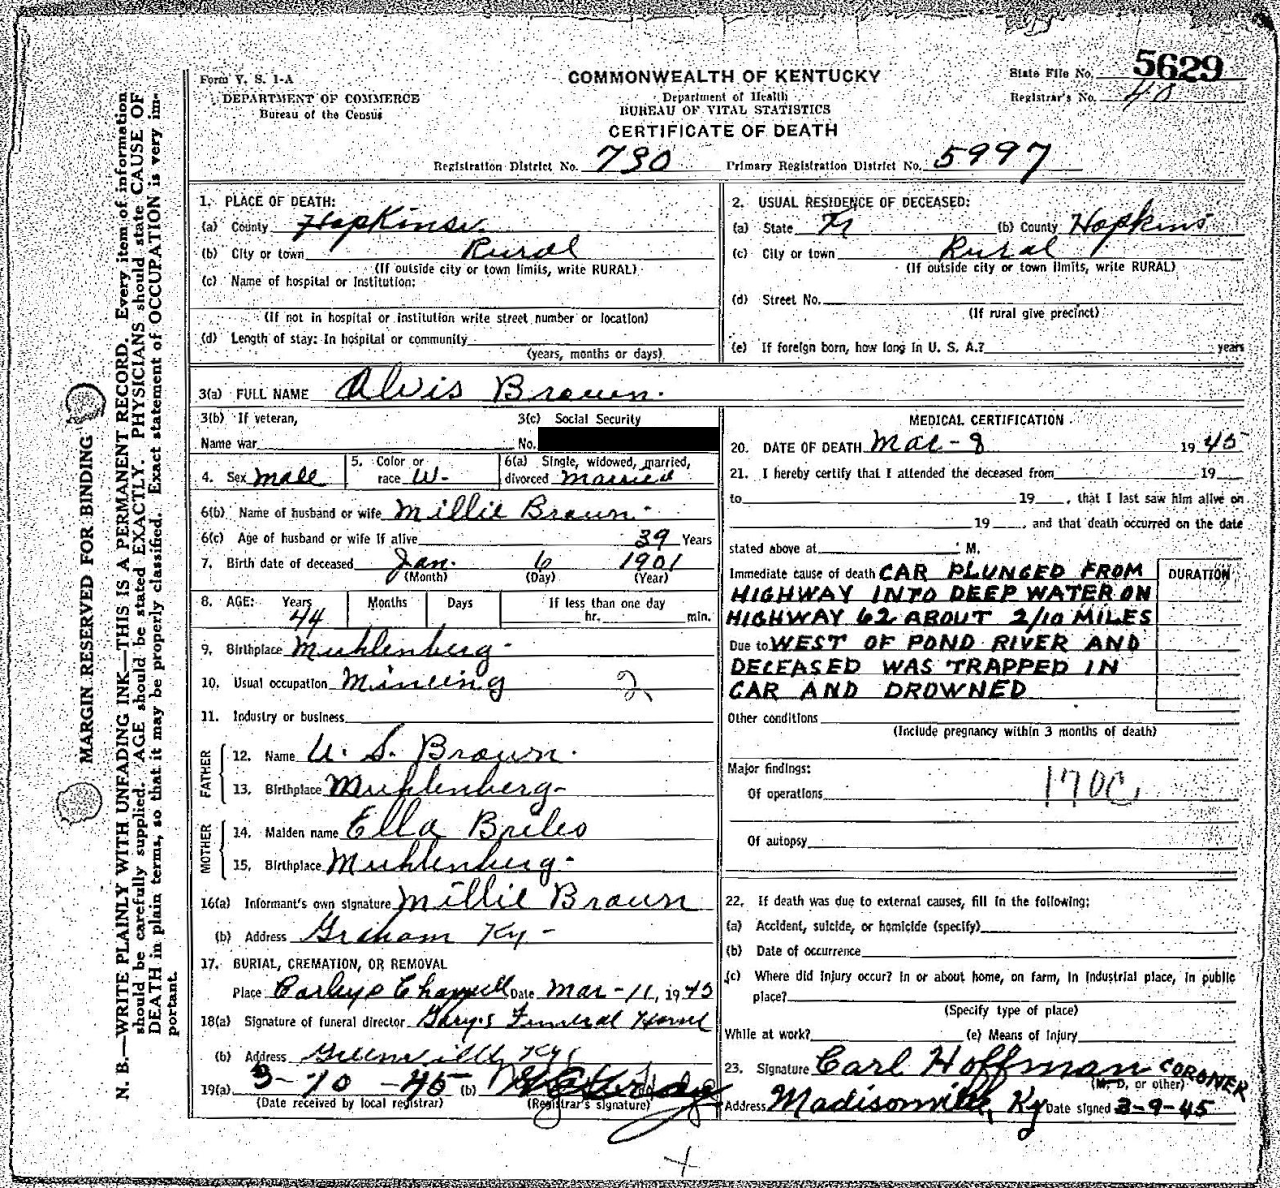 Form V. S. 1-A
DEPARTMENT OF COMMERCE
Bureau of the Census
COMMONWEALTH OF KENTUCKY
Department of Health
BUREAU OF VITAL STATISTICS
CERTIFICATE OF DEATH
State File No. 5629
Registrar's No. 40
Registration District No. 730 Primary Registration District No. 5997
MARGIN RESERVED FOR BINDING
N. B.—WRITE PLAINLY WITH UNFADING INK—THIS IS A PERMANENT RECORD. Every item of information
should be carefully supplied. AGE should be stated EXACTLY. PHYSICIANS should state CAUSE OF
DEATH in plain terms, so that it may be properly classified. Exact statement of OCCUPATION is very im-
portant.
1. PLACE OF DEATH:
(a) County Hopkins
(b) City or town Rural
(If outside city or town limits, write RURAL)
(c) Name of hospital or Institution:
(If not in hospital or institution write street number or location)
(d) Length of stay: In hospital or community
(years, months or days)
2. USUAL RESIDENCE OF DECEASED:
(a) State Ky (b) County Hopkins
(c) City or town Rural
(If outside city or town limits, write RURAL)
(d) Street No.
(If rural give precinct)
(e) If foreign born, how long in U. S. A.? years
3(a) FULL NAME Alvis Brown.
3(b) If veteran,
Name war
3(c) Social Security
No.
4. Sex male
5. Color or
race W.
6(a) Single, widowed, married,
divorced married
6(b) Name of husband or wife Millie Brown.
6(c) Age of husband or wife if alive 39 Years
7. Birth date of deceased Jan. 6 1901
(Month) (Day) (Year)
8. AGE: Years Months Days If less than one day
44 hr. min.
9. Birthplace Muhlenberg-
10. Usual occupation Mining 2
11. Industry or business
FATHER
12. Name U. S. Brown.
13. Birthplace Muhlenberg-
MOTHER
14. Maiden name Ella Briles
15. Birthplace Muhlenberg-
16(a) Informant's own signature Millie Brown
(b) Address Graham Ky-
17. BURIAL, CREMATION, OR REMOVAL
Place Date Mar-11, 1945
18(a) Signature of funeral director Gary's Funeral Home
(b) Address Greenville, Ky
19(a) 3-10-45 (b)
(Date received by local registrar) (Registrar's signature)
MEDICAL CERTIFICATION
20. DATE OF DEATH Mar-8 1945
21. I hereby certify that I attended the deceased from 19
to 19 , that I last saw him alive on
19 , and that death occurred on the date
stated above at M.
Immediate cause of death CAR PLUNGED FROM DURATION
HIGHWAY INTO DEEP WATER ON
HIGHWAY 62 ABOUT 2/10 MILES
Due to WEST OF POND RIVER AND
DECEASED WAS TRAPPED IN
CAR AND DROWNED
Other conditions
(Include pregnancy within 3 months of death)
Major findings:
Of operations 170C
Of autopsy
22. If death was due to external causes, fill in the following:
(a) Accident, suicide, or homicide (specify)
(b) Date of occurrence
(c) Where did injury occur? In or about home, on farm, in industrial place, in public
place?
(Specify type of place)
While at work? (e) Means of Injury
23. Signature Carl Hoffman CORONER
(M. D. or other)
Address Madisonville, Ky Date signed 3-9-45